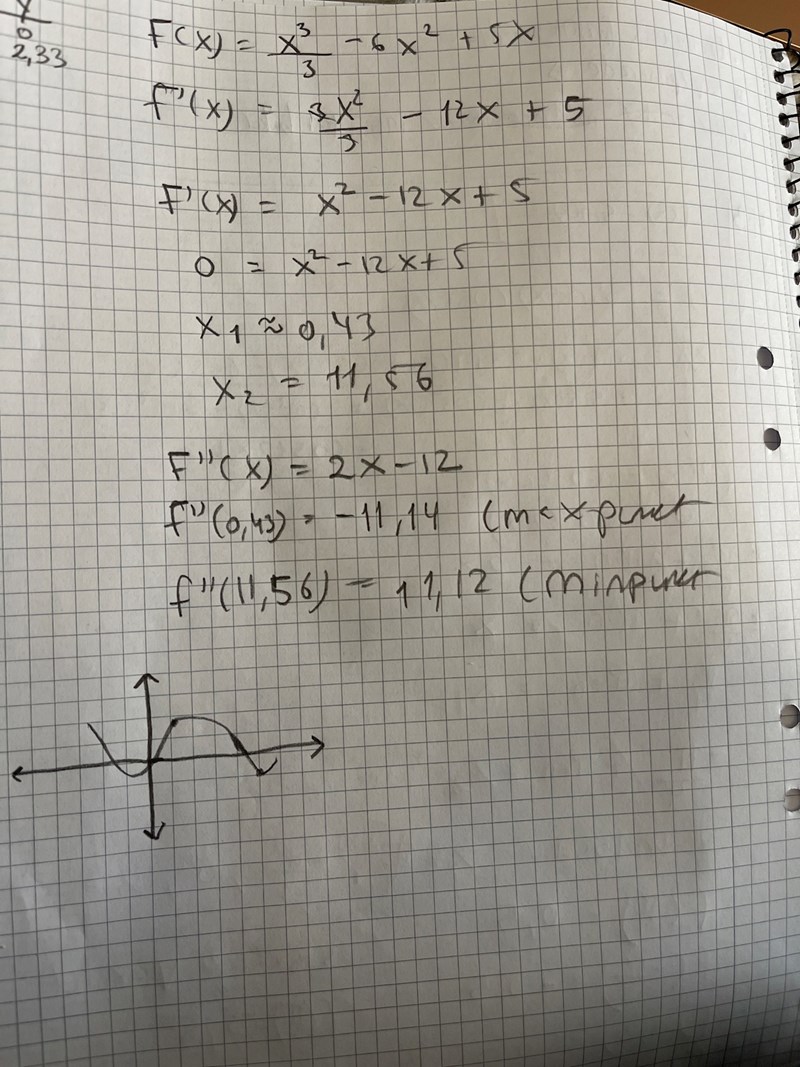 y
0
2,33
F(x) = x³/3 - 6x² + 5x
f'(x) = 3x²/3 - 12x + 5
F'(x) = x² - 12x + 5
0 = x² - 12x + 5
x₁ ≈ 0,43
x₂ = 11,56
F''(x) = 2x - 12
f''(0,43) = -11,14 (maxpunkt
f''(11,56) = 11,12 (minpunkt